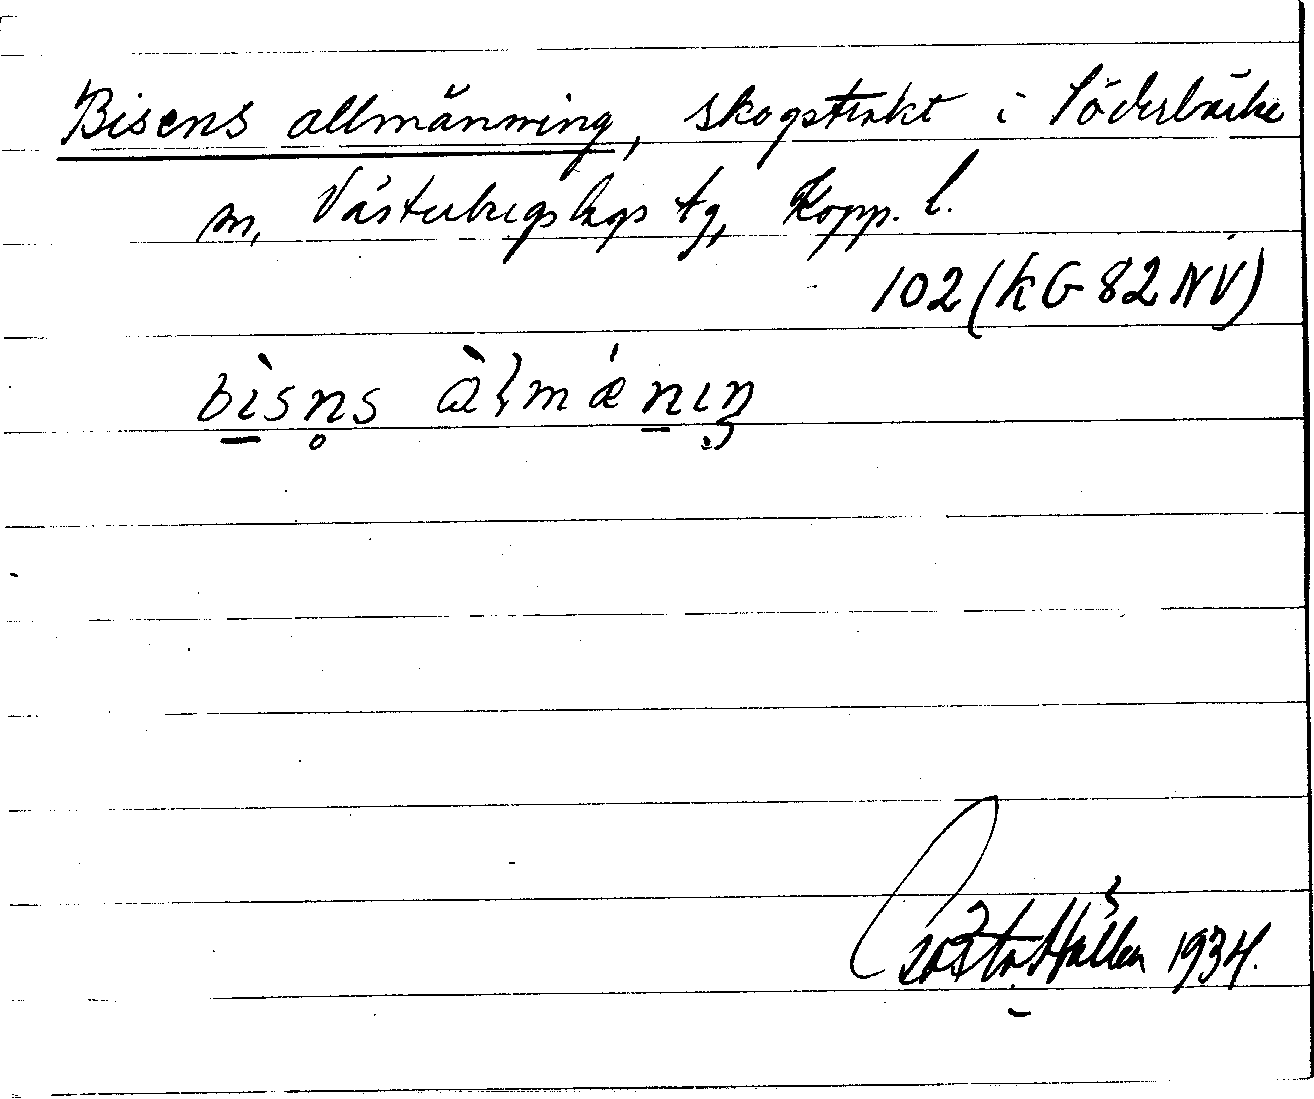 Bisens allmänning, skogstrakt i Söderbärke
m, Västerbergslags tg, Kopp. l.
102 (KG 82 NV)
bìsn̥s àlmǽnıŋ
Gösta Hallén 1934.